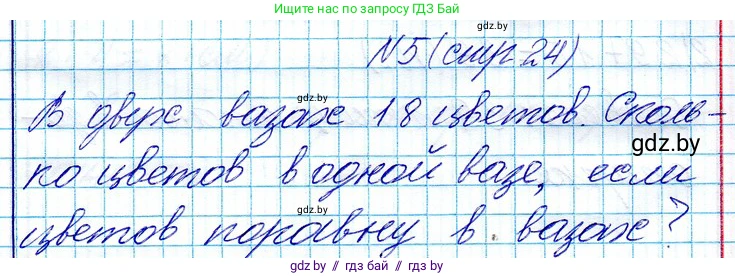 Ищите нас по запросу ГДЗ БАЙ
gdz.by
N5 (стр 24)
gdz.by
В двух вазах 18 цветов. Сколь-
gdz.by
ко цветов в одной вазе, если
gdz.by
цветов поравну в вазах?
gdz.by // гдз бай // гдз by